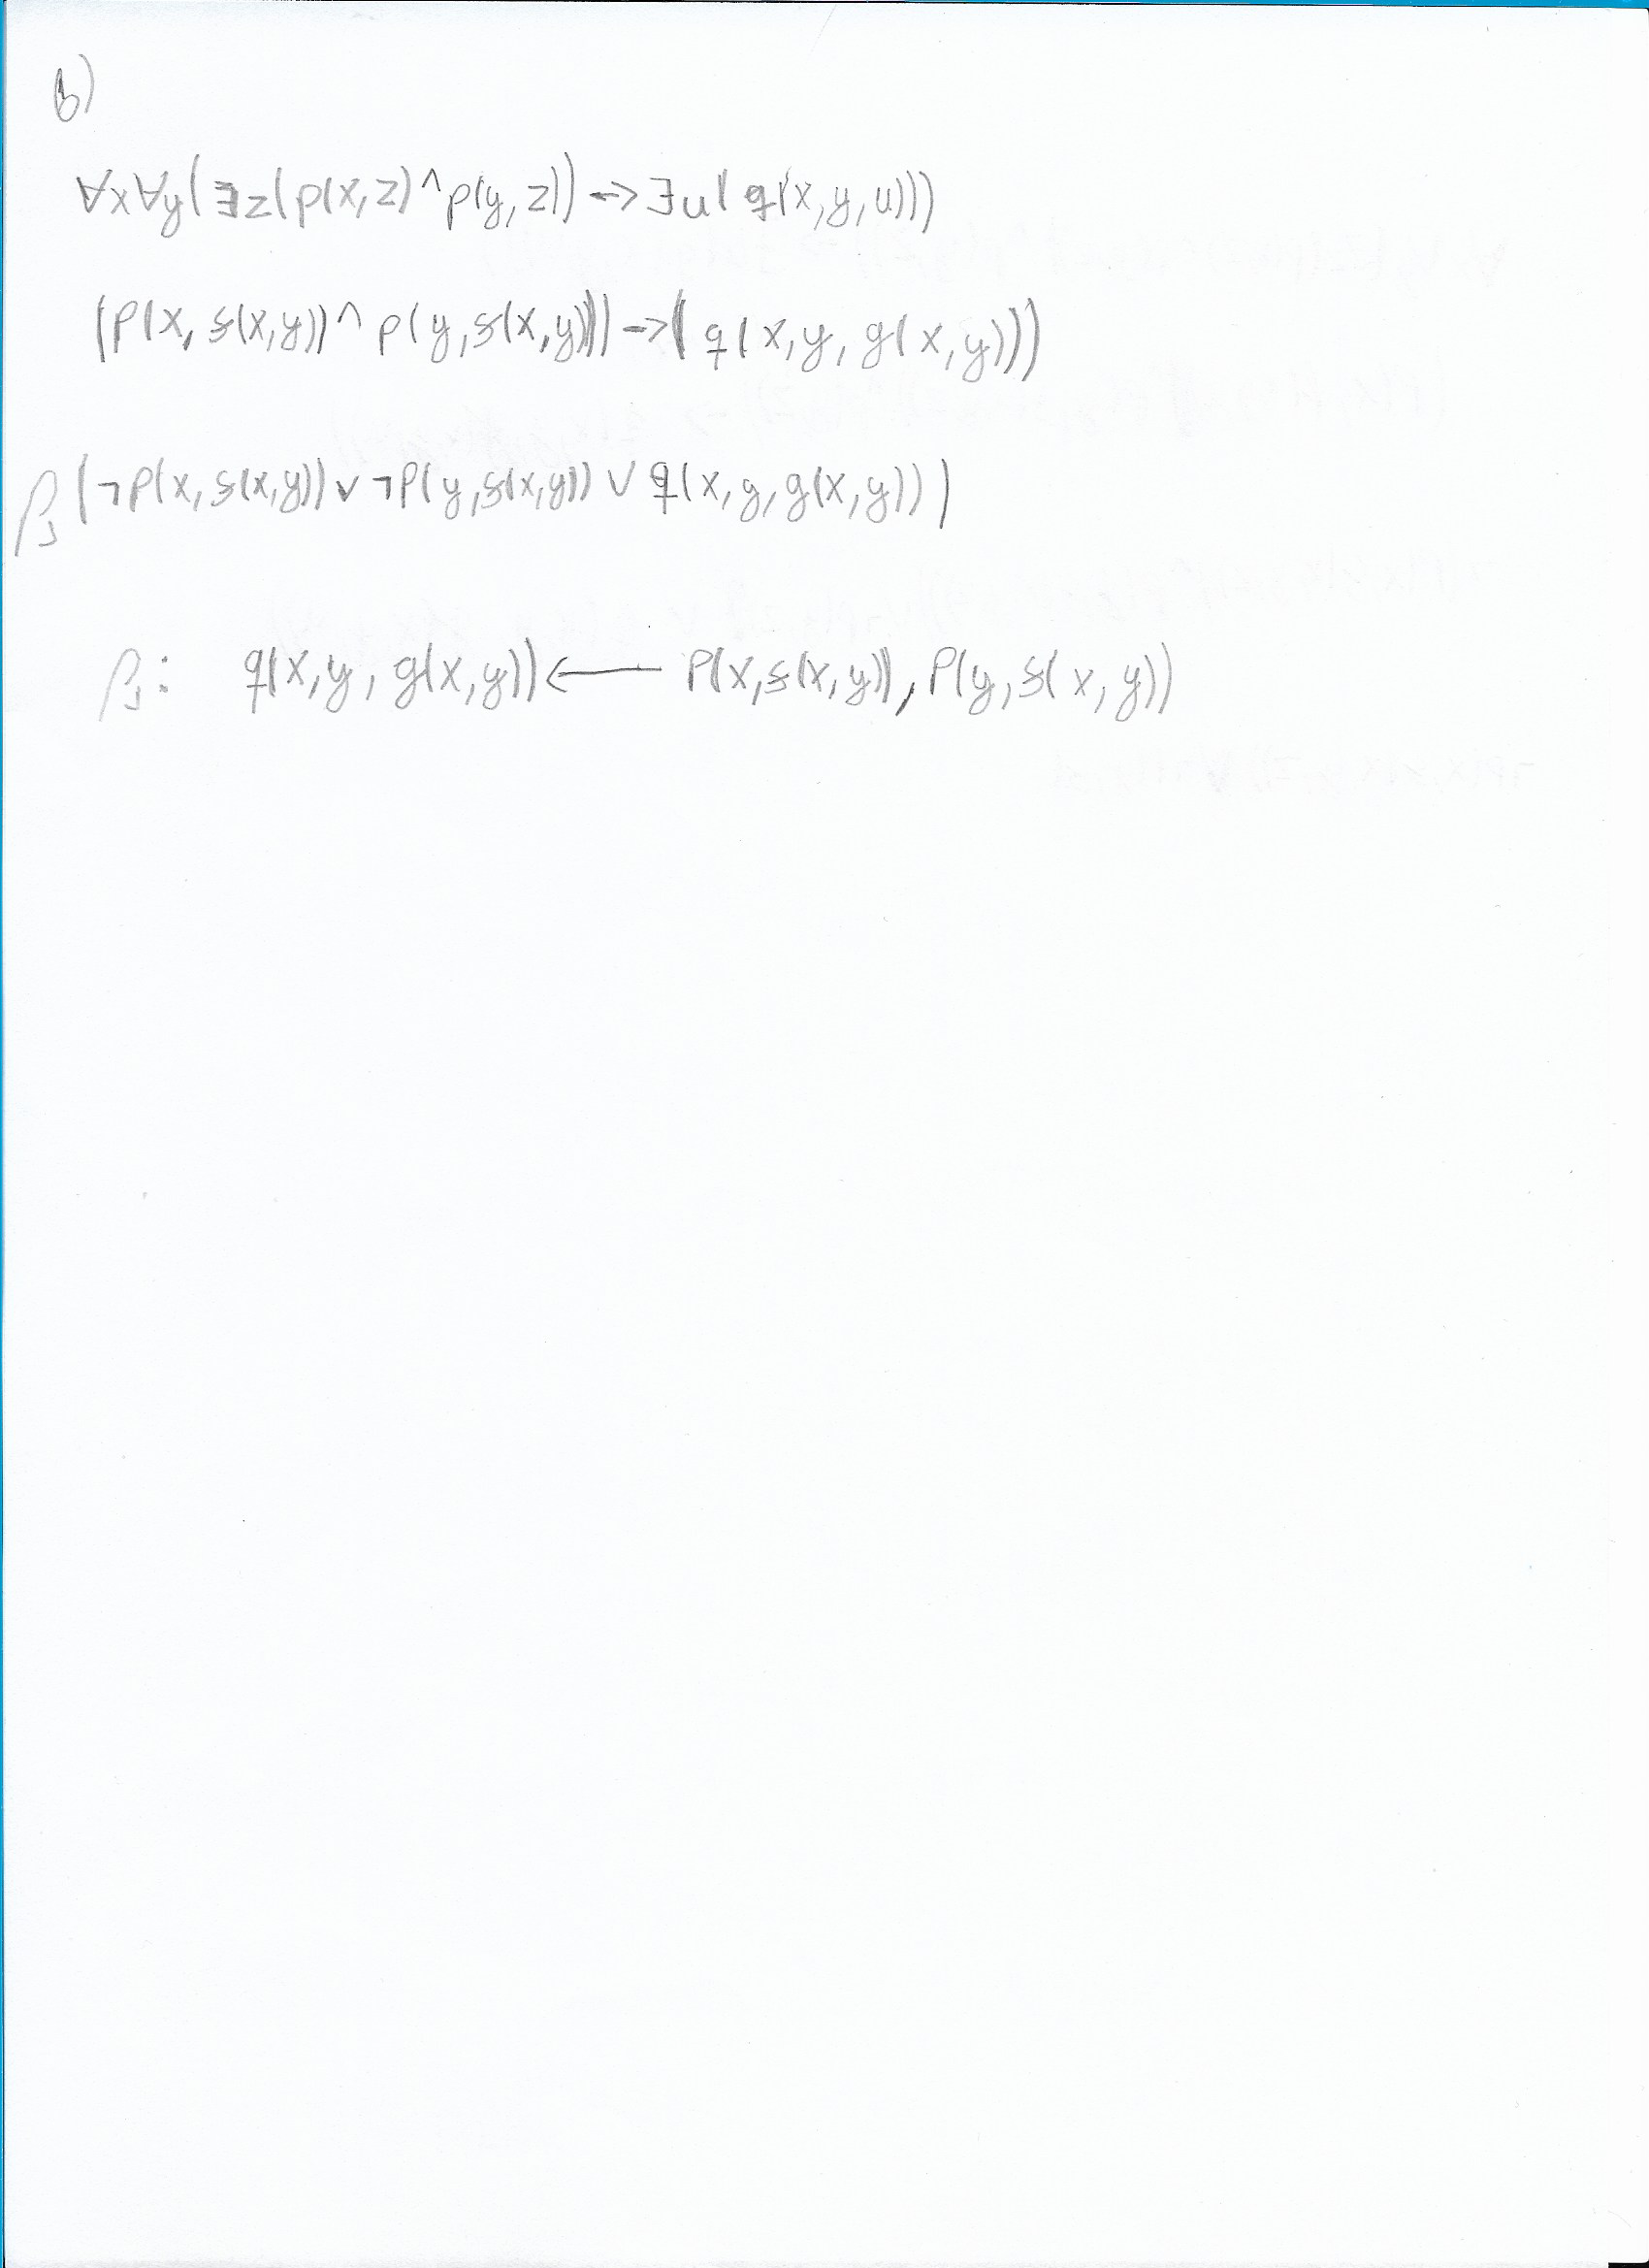 b)
∀x∀y(∃z(p(x,z)^p(y,z))->∃u(q(x,y,u)))
(P(x, f(x,y))^p(y,f(x,y)))->(q(x,y,g(x,y)))
β₁(¬P(x,f(x,y))∨¬P(y,f(x,y))∨q(x,y,g(x,y)))
β₁: q(x,y,g(x,y))<—— P(x,f(x,y)),P(y,f(x,y))